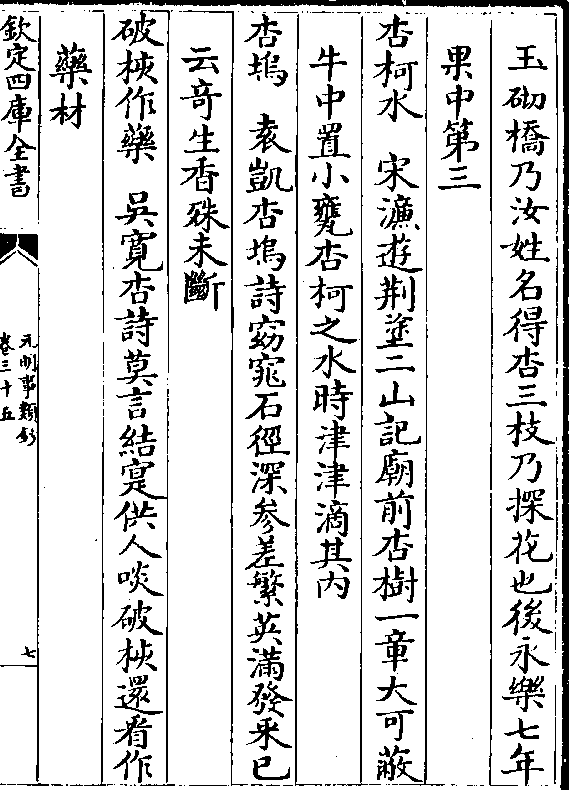 玉砌橋乃汝姓名得杏三枝乃探花也後永樂七年
果中第三
杏柯水　宋濂遊荆塗二山記廟前杏樹一章大可蔽
牛中置小甕杏柯之水時津津滴其内
杏塢　袁凱杏塢詩窈窕石徑深參差繁英滿發采已
云竒生香殊未斷
破核作藥　吳寛杏詩莫言結寔供人啖破核還看作
藥材
欽定四庫全書
元明事類鈔
卷三十五
七